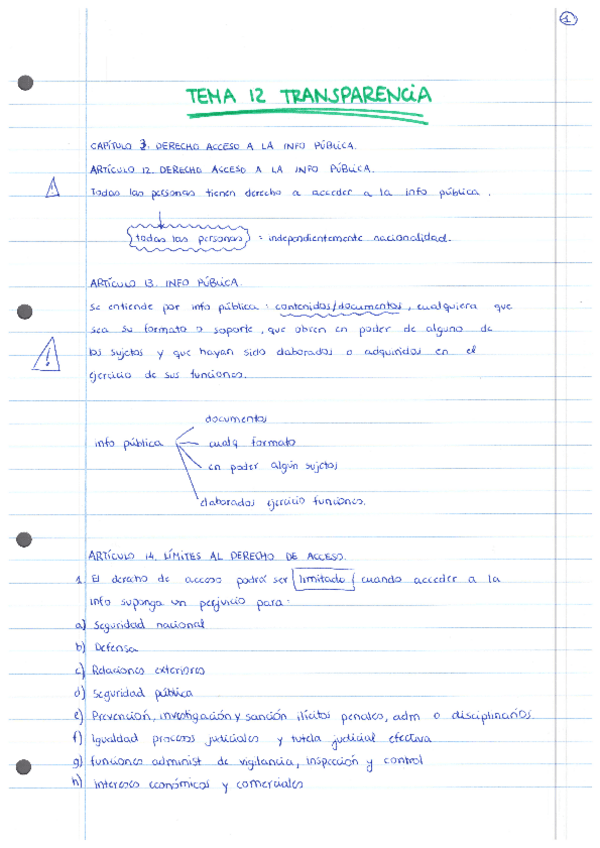 1
TEMA 12 TRANSPARENCIA
CAPÍTULO 3. DERECHO ACCESO A LA INFO PÚBLICA.
ARTÍCULO 12. DERECHO ACCESO A LA INFO PÚBLICA.
Todas las personas tienen derecho a acceder a la info pública.
todas las personas : independientemente nacionalidad.
ARTÍCULO 13. INFO PÚBLICA.
Se entiende por info pública : contenidos/documentos, cualquiera que
sea su formato o soporte, que obren en poder de alguno de
los sujetos y que hayan sido elaborados o adquiridos en el
ejercicio de sus funciones.
documentos
info pública
cualq formato
en poder algún sujetos
elaborados ejercicio funciones.
ARTÍCULO 14. LÍMITES AL DERECHO DE ACCESO.
1. El derecho de acceso podrá ser limitado cuando acceder a la
info suponga un perjuicio para:
a) Seguridad nacional
b) Defensa
c) Relaciones exteriores
d) Seguridad pública
e) Prevención, investigación y sanción ilícitos penales, adm o disciplinarios.
f) Igualdad procesos judiciales y tutela judicial efectiva
g) funciones administ de vigilancia, inspección y control
h) Intereses económicos y comerciales